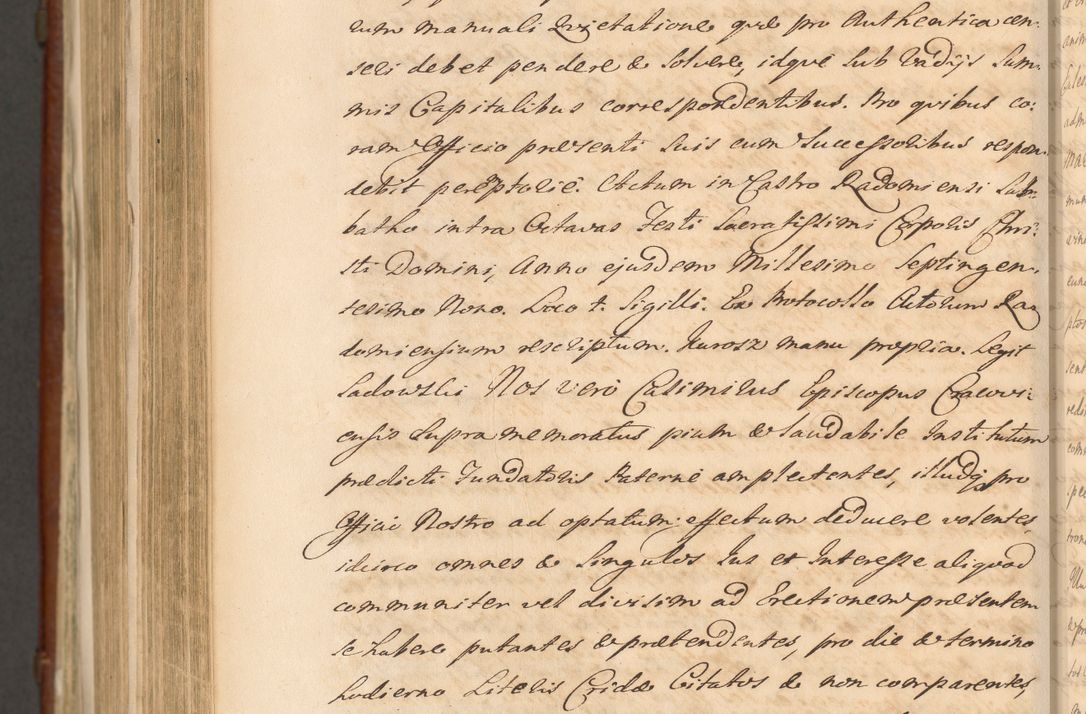 rum manuali Qvietatione que pro Authentica cen:
seri debet pendere & solvere, idque sub Vadijs Sum:
mis Capitalibus correspondentibus. Pro qvibus co:
ram Officio præsenti suis cum Successoribus respon:
debit peremptorie. Actum in Castro Radomiensi Sab:
batho intra Octavas Festi Sacratissimi Corporis Chri:
sti Domini, Anno ejusdem Millesimo Septingen:
tesimo Nono. Loco +. Sigilli: Ex Protocollo Actorum Ra:
domiensium rescriptum. Kurosz manu propria. Legit
Sadowski Nos vero Casimirus Episcopus Cracovi:
ensis supra memoratus pium & laudabile Institutum
prædicti Fundatoris Paterne amplectentes, illudq pro
Officii Nostro ad optatum effectum deducere volentes,
idcirco omnes & Singulos Ius et Interesse aliqvod
communiter vel divisim ad Erectionem præsentem
se habere putantes & prætendentes, pro die & termino
hodierno Literis Cridæ Citatos & non comparentes,